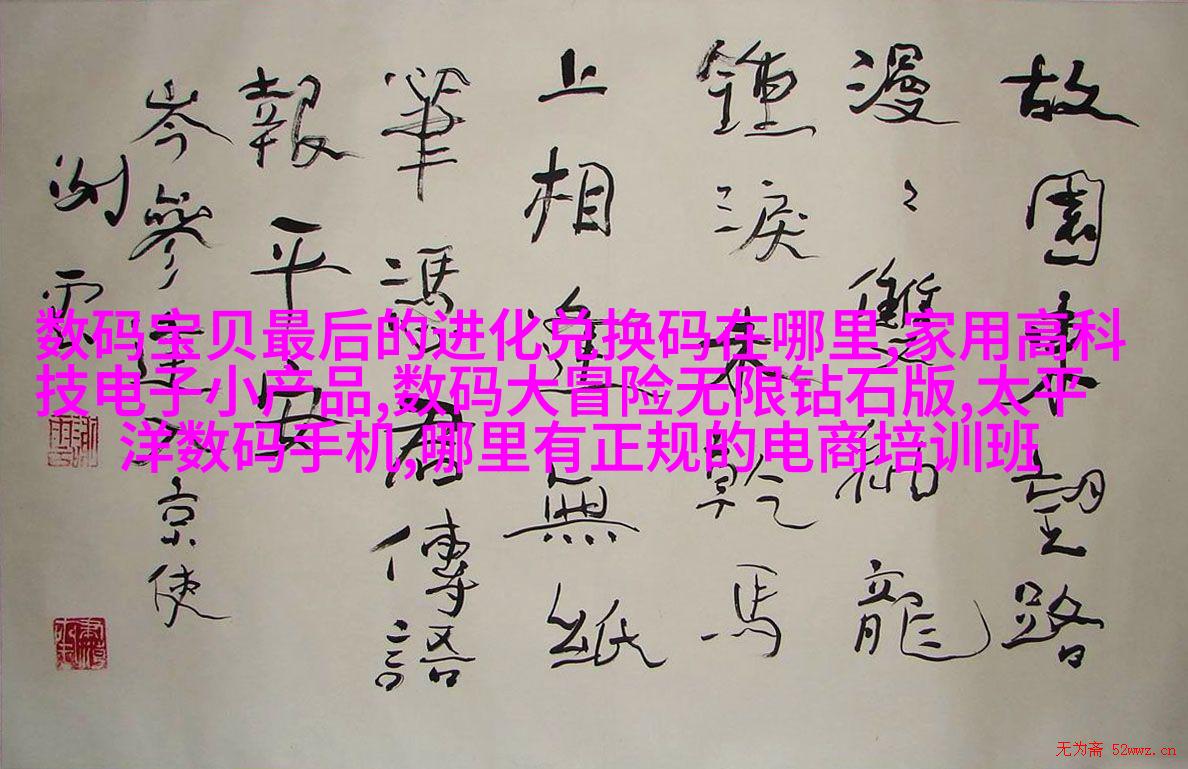 故園東望路
漫〻雙袖龍
鍾淚未乾馬
上相逢無紙
筆馮君傳語
報平安
岑參逢入京使
数码宝贝最后的进化兑换码在哪里,家用高科
技电子小产品,数码大冒险无限钻石版,太平
洋数码手机,哪里有正规的电商培训班
无为斋 52wwz.cn